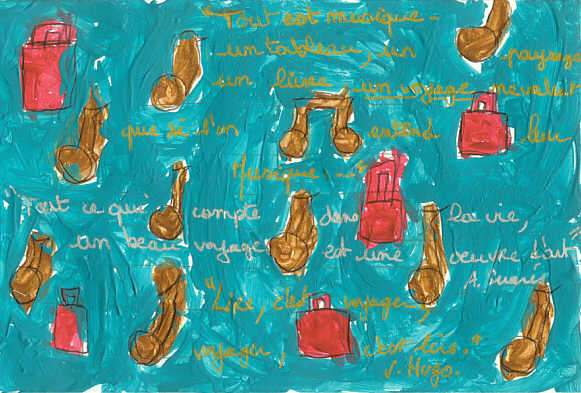 "Tout est musique -
un tableau, un paysage
un livre, un voyage ne valent
que si l'on entend leur
Musique ..."
"Tout ce qui compte dans la vie,
un beau voyage est une oeuvre d'art"
A. Suarès
"Lire, c'est voyager,
voyager, c'est lire."
V. Hugo.